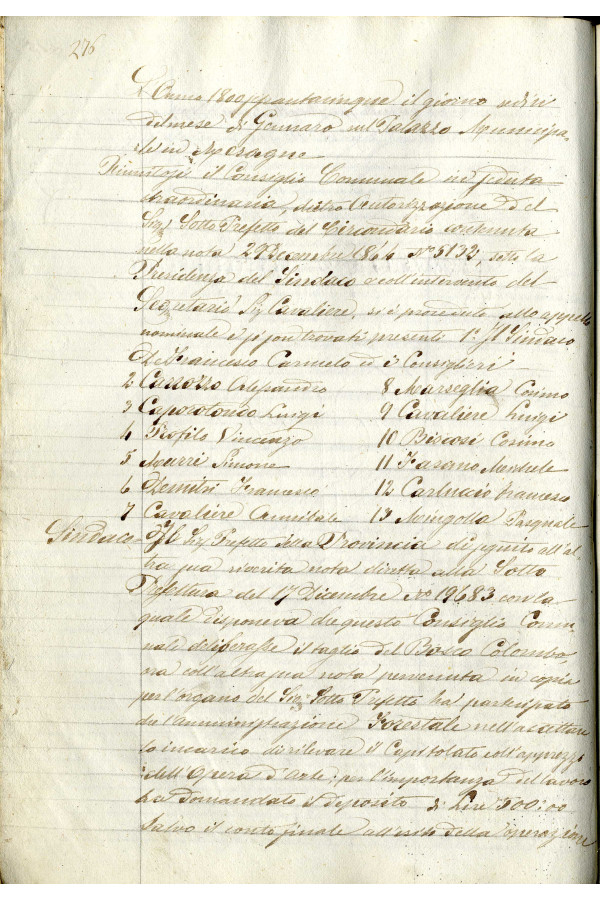 276
L'Anno 1800sessantacinque il giorno
del mese di Gennaro nel Palazzo Municipa-
le in Mesagne
Riunitosi il Consiglio Comunale in seduta
straordinaria, dietro Autorizzazione del
Sig. Sotto Prefetto del Circondario contenuta
nella nota 2 Dicembre 1864 N° 5132, sotto la
Presidenza del Sindaco e coll'intervento del
Segretario Sig. Cavaliere, si è proceduto allo appello
nominale e si son trovati presenti 1° Il Sindaco
De Francesco Carmelo ed i Consiglieri
2 Carrozzo Alessandro 8 Marseglia Cosimo
3 Caporotondo Luigi 9 Cavaliere Luigi
4 Profilo Vincenzo 10 Biscosi Cosimo
5 Murri Simone 11 Fasano
6 Demitri Francesco 12 Carluccio Francesco
7 Cavaliere Annibale 13 Mingolla Pasquale
Sindaco Il Sig. Prefetto della Provincia di seguito all'al-
tra sua riverita nota diretta alla Sotto
Prefettura del 17 Dicembre N° 19683 con la
quale disponeva che questo Consiglio Comu-
nale deliberasse il taglio del Bosco Colombo,
ora coll'altra sua nota pervenuta in copia
per l'organo del Sig. Sotto Prefetto ha participato
che l'Amministrazione Forestale nell'accettare
lo incarico di rilevare il Capitolato coll'apprezzo
dell'Opera d'Arte; per l'importanza del lavoro
ha domandato il deposito di Lire 500:00
salvo il conto finale all'esito della operazione